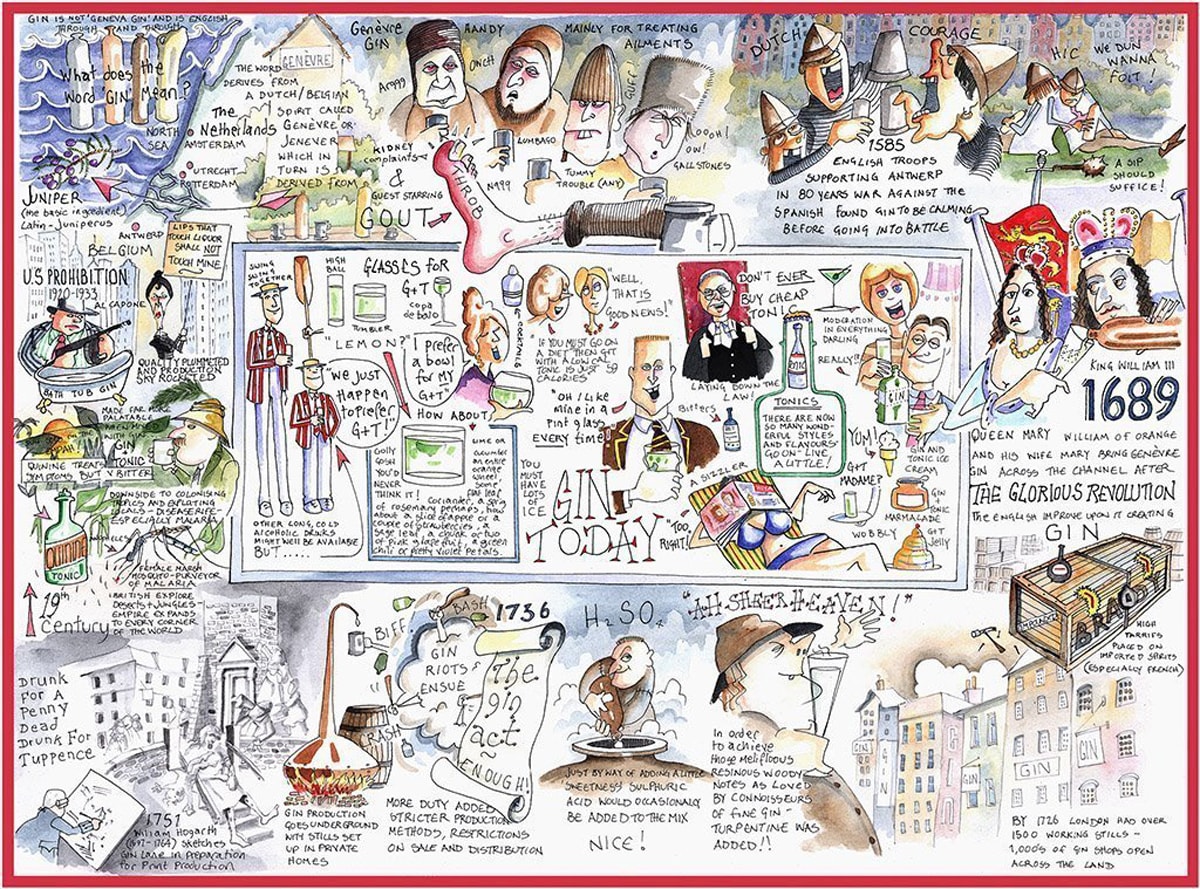 GIN IS NOT 'GENEVA GIN' AND IS ENGLISH
THROUGH AND THROUGH
What does the
word 'GIN' Mean?
THE WORD
DERIVES FROM
A DUTCH/BELGIAN
SPIRIT CALLED
GENÈVRE OR
JENEVER
WHICH IN
TURN IS
DERIVED FROM
GENÈVRE
The
Netherlands
NORTH
SEA
AMSTERDAM
UTRECHT
ROTTERDAM
JUNIPER
(the basic ingredient)
Latin - Juniperus
ANTWERP
BELGIUM
Genèvre
GIN
HANDY
MAINLY FOR TREATING
AILMENTS
OUCH
LUMBAGO
KIDNEY
complaints
TUMMY
TROUBLE (ANY)
OW!
GALLSTONES
&
GUEST STARRING
GOUT
THROB
DUTCH
COURAGE
HIC
WE DUN
WANNA
FOIT!
1585
ENGLISH TROOPS
SUPPORTING ANTWERP
IN 80 YEARS WAR AGAINST THE
SPANISH FOUND GIN TO BE CALMING
BEFORE GOING INTO BATTLE
A SIP
SHOULD
SUFFICE!
KING WILLIAM III
1689
QUEEN MARY
WILLIAM OF ORANGE
AND HIS WIFE MARY BRING GENÈVRE
GIN ACROSS THE CHANNEL AFTER
THE GLORIOUS REVOLUTION
THE ENGLISH IMPROVE UPON IT CREATING
GIN
HIGH
TARRIFS
PLACED ON
IMPORTED SPIRITS
(ESPECIALLY FRENCH)
GIN
GIN
GIN
GIN
BY 1726 LONDON HAD OVER
1500 WORKING STILLS -
1,000'S OF GIN SHOPS OPEN
ACROSS THE LAND
"AH SHEER HEAVEN!"
In order
to achieve
those mellifluous
RESINOUS WOODY
NOTES AS LOVED
BY CONNOISSEURS
OF FINE GIN
TURPENTINE WAS
ADDED!!
H₂SO₄
JUST BY WAY OF ADDING A LITTLE
'SWEETNESS' SULPHURIC
ACID WOULD OCCASIONALLY
BE ADDED TO THE MIX
NICE!
1736
BIFF
BASH
GIN
RIOTS
ENSUE
CRASH
The
gin
act
ENOUGH!
MORE DUTY ADDED
STRICTER PRODUCTION
METHODS, RESTRICTIONS
ON SALE AND DISTRIBUTION
GIN PRODUCTION
GOES UNDERGROUND
WITH STILLS SET
UP IN PRIVATE
HOMES
DRUNK
FOR A
PENNY
DEAD
DRUNK FOR
TUPPENCE
1751
William Hogarth
(1697-1764) sketches
Gin Lane in preparation
for Print Production
19th
century
BRITISH EXPLORE
Deserts + JUNGLES -
EMPIRE EXPANDS
TO EVERY CORNER
OF THE WORLD
FEMALE MARSH
MOSQUITO - PURVEYOR
OF MALARIA
DOWNSIDE TO COLONISING
TROPICS AND EXPLOITING
LOCALS - DISEASE RIFE -
ESPECIALLY MALARIA
QUININE
TONIC
QUININE TREATS
SYMPTOMS BUT V BITTER
MADE FAR MORE
PALATABLE
WHEN MIXED
WITH GIN
GIN
TONIC
U.S PROHIBITION
1920-1933
AL CAPONE
BATH TUB GIN
LIPS THAT
TOUCH LIQUOR
SHALL NOT
TOUCH MINE
QUALITY PLUMMETED
AND PRODUCTION
SKY ROCKETED
SWING
SWING
TOGETHER
HIGH
BALL
GLASSES FOR
G+T
TUMBLER
copa
de balo
COCKTAILS
"LEMON?"
"WE JUST
HAPPEN
TO PREFER
G+T!"
"I prefer
a bowl
for MY
G+T"
OTHER LONG, COLD
ALCOHOLIC DRINKS
MIGHT WELL BE AVAILABLE
BUT......
HOW ABOUT
GOLLY
GOSH
YOU'D
NEVER
THINK IT!
LIME OR
cucumber
an entire
orange
wheel,
some
flat leaf
Coriander, a sprig
of rosemary perhaps, how
about a slice of apple or a
couple of strawberries, a
sage leaf, a chunk or two
of pink grapefruit, a green
chili or pretty violet petals.
YOU
MUST
HAVE
LOTS
OF
ICE
"WELL,
THAT IS
GOOD NEWS!"
"IF YOU MUST GO ON
A DIET THEN GIN
WITH A LOW CAL
TONIC IS JUST 59
CALORIES"
"OH I LIKE
mine in a
pint glass
EVERY time"
GIN
TODAY
"TOO
RIGHT!"
DON'T EVER
BUY CHEAP
TONIC
LAYING DOWN THE
LAW!
Bitters
TONIC
TONICS
THERE ARE NOW
SO MANY WOND-
ERFUL STYLES
AND FLAVOURS
GO ON - LIVE
A LITTLE!
A SIZZLER
MODERATION
IN EVERYTHING
DARLING
REALLY!!
GIN
YUM!
GIN AND
TONIC ICE
CREAM
G+T
MADAME?
GIN
TONIC
MARMALADE
WOBBLY
G+T
Jelly